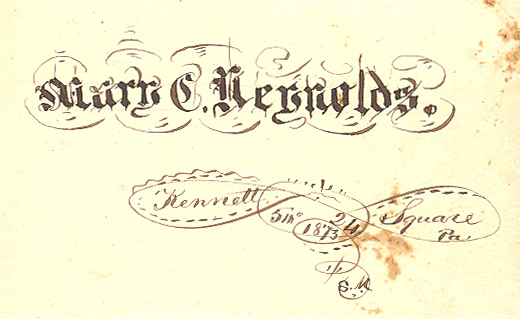 Mary C. Reynolds.
Kennett Square
5th mo 24 Pa.
1873
S. M